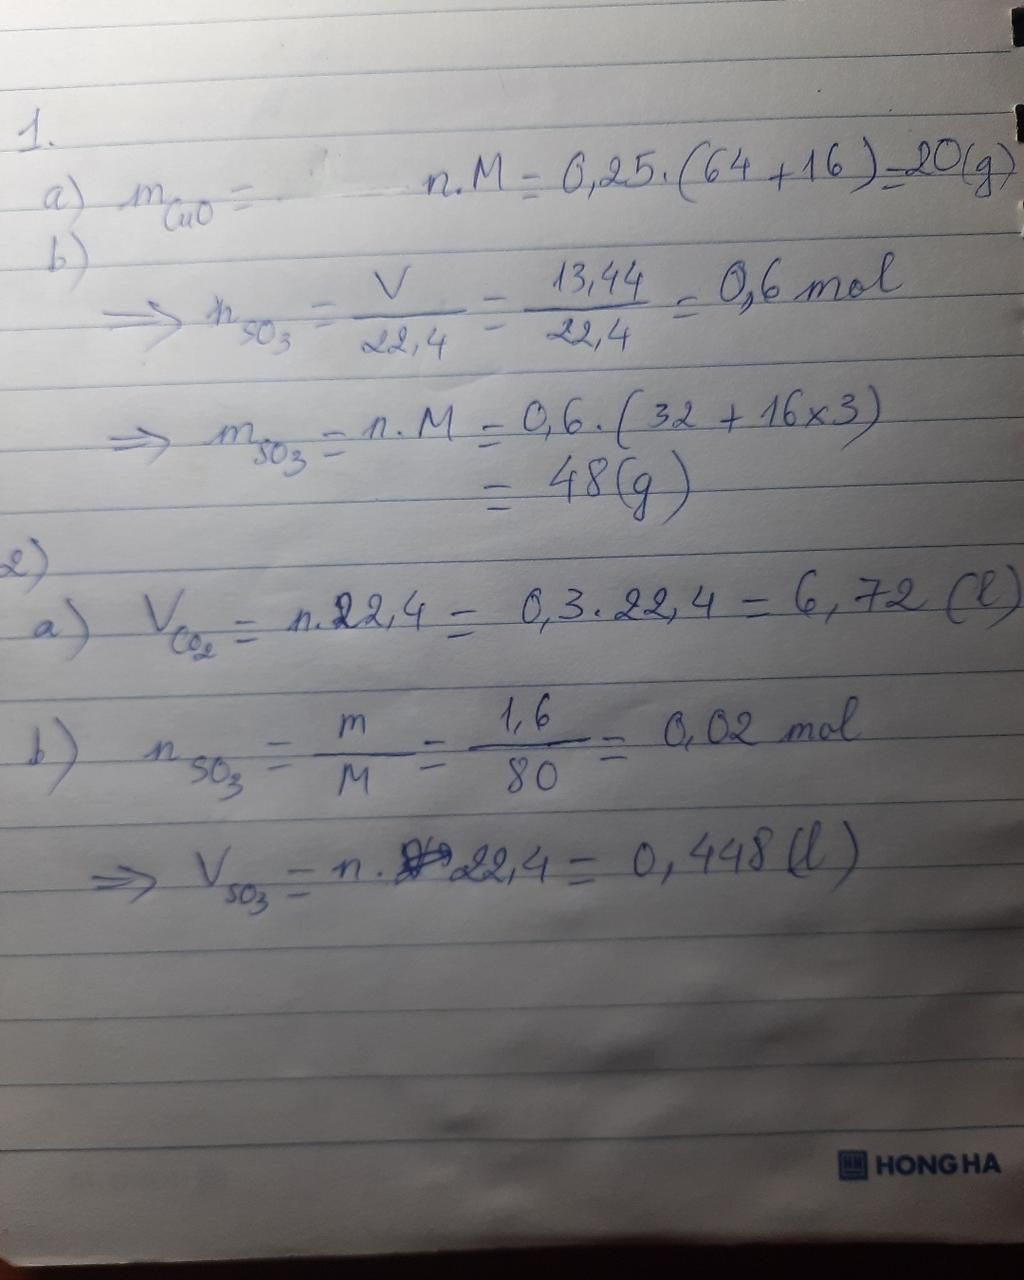 1.
a) mCuO = n.M = 0,25.(64 + 16) = 20(g)
b)
⇒ nSO3 = V/22,4 = 13,44/22,4 = 0,6 mol
⇒ mSO3 = n.M = 0,6.(32 + 16x3)
= 48(g)
2)
a) VCO2 = n.22,4 = 0,3.22,4 = 6,72 (l)
b) nSO3 = m/M = 1,6/80 = 0,02 mol
⇒ VSO3 = n. 22,4 = 0,448 (l)
HH HONG HA